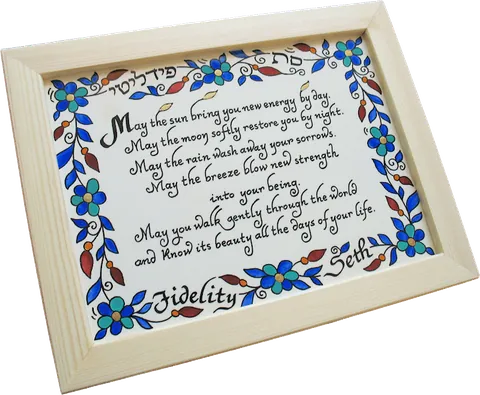 פידליטי
סת
May the sun bring you new energy by day.
May the moon softly restore you by night.
May the rain wash away your sorrows.
May the breeze blow new strength
into your being.
May you walk gently through the world
and know its beauty all the days of your life.
Fidelity
Seth